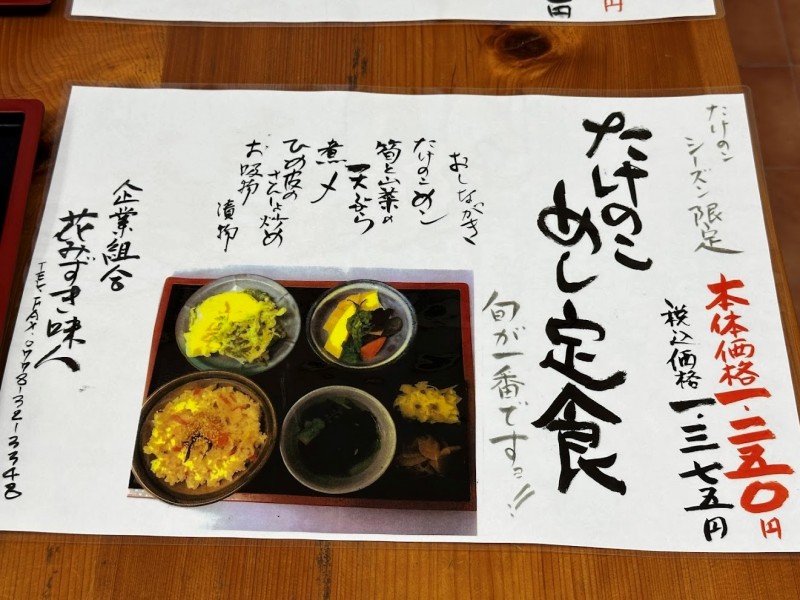 円
円
たけのこ
シーズン限定
本体価格一、二五〇円
税込価格一、三七五円
たけのこ
めし定食
旬が一番ですョ!!
おしながき
たけのこメシ
筍と山菜の
天ぷら
煮〆
ひめ皮のきんぴら炒め
お吸物
漬物
企業組合
花みずき味人
TEL.FAX.0778-32-3348